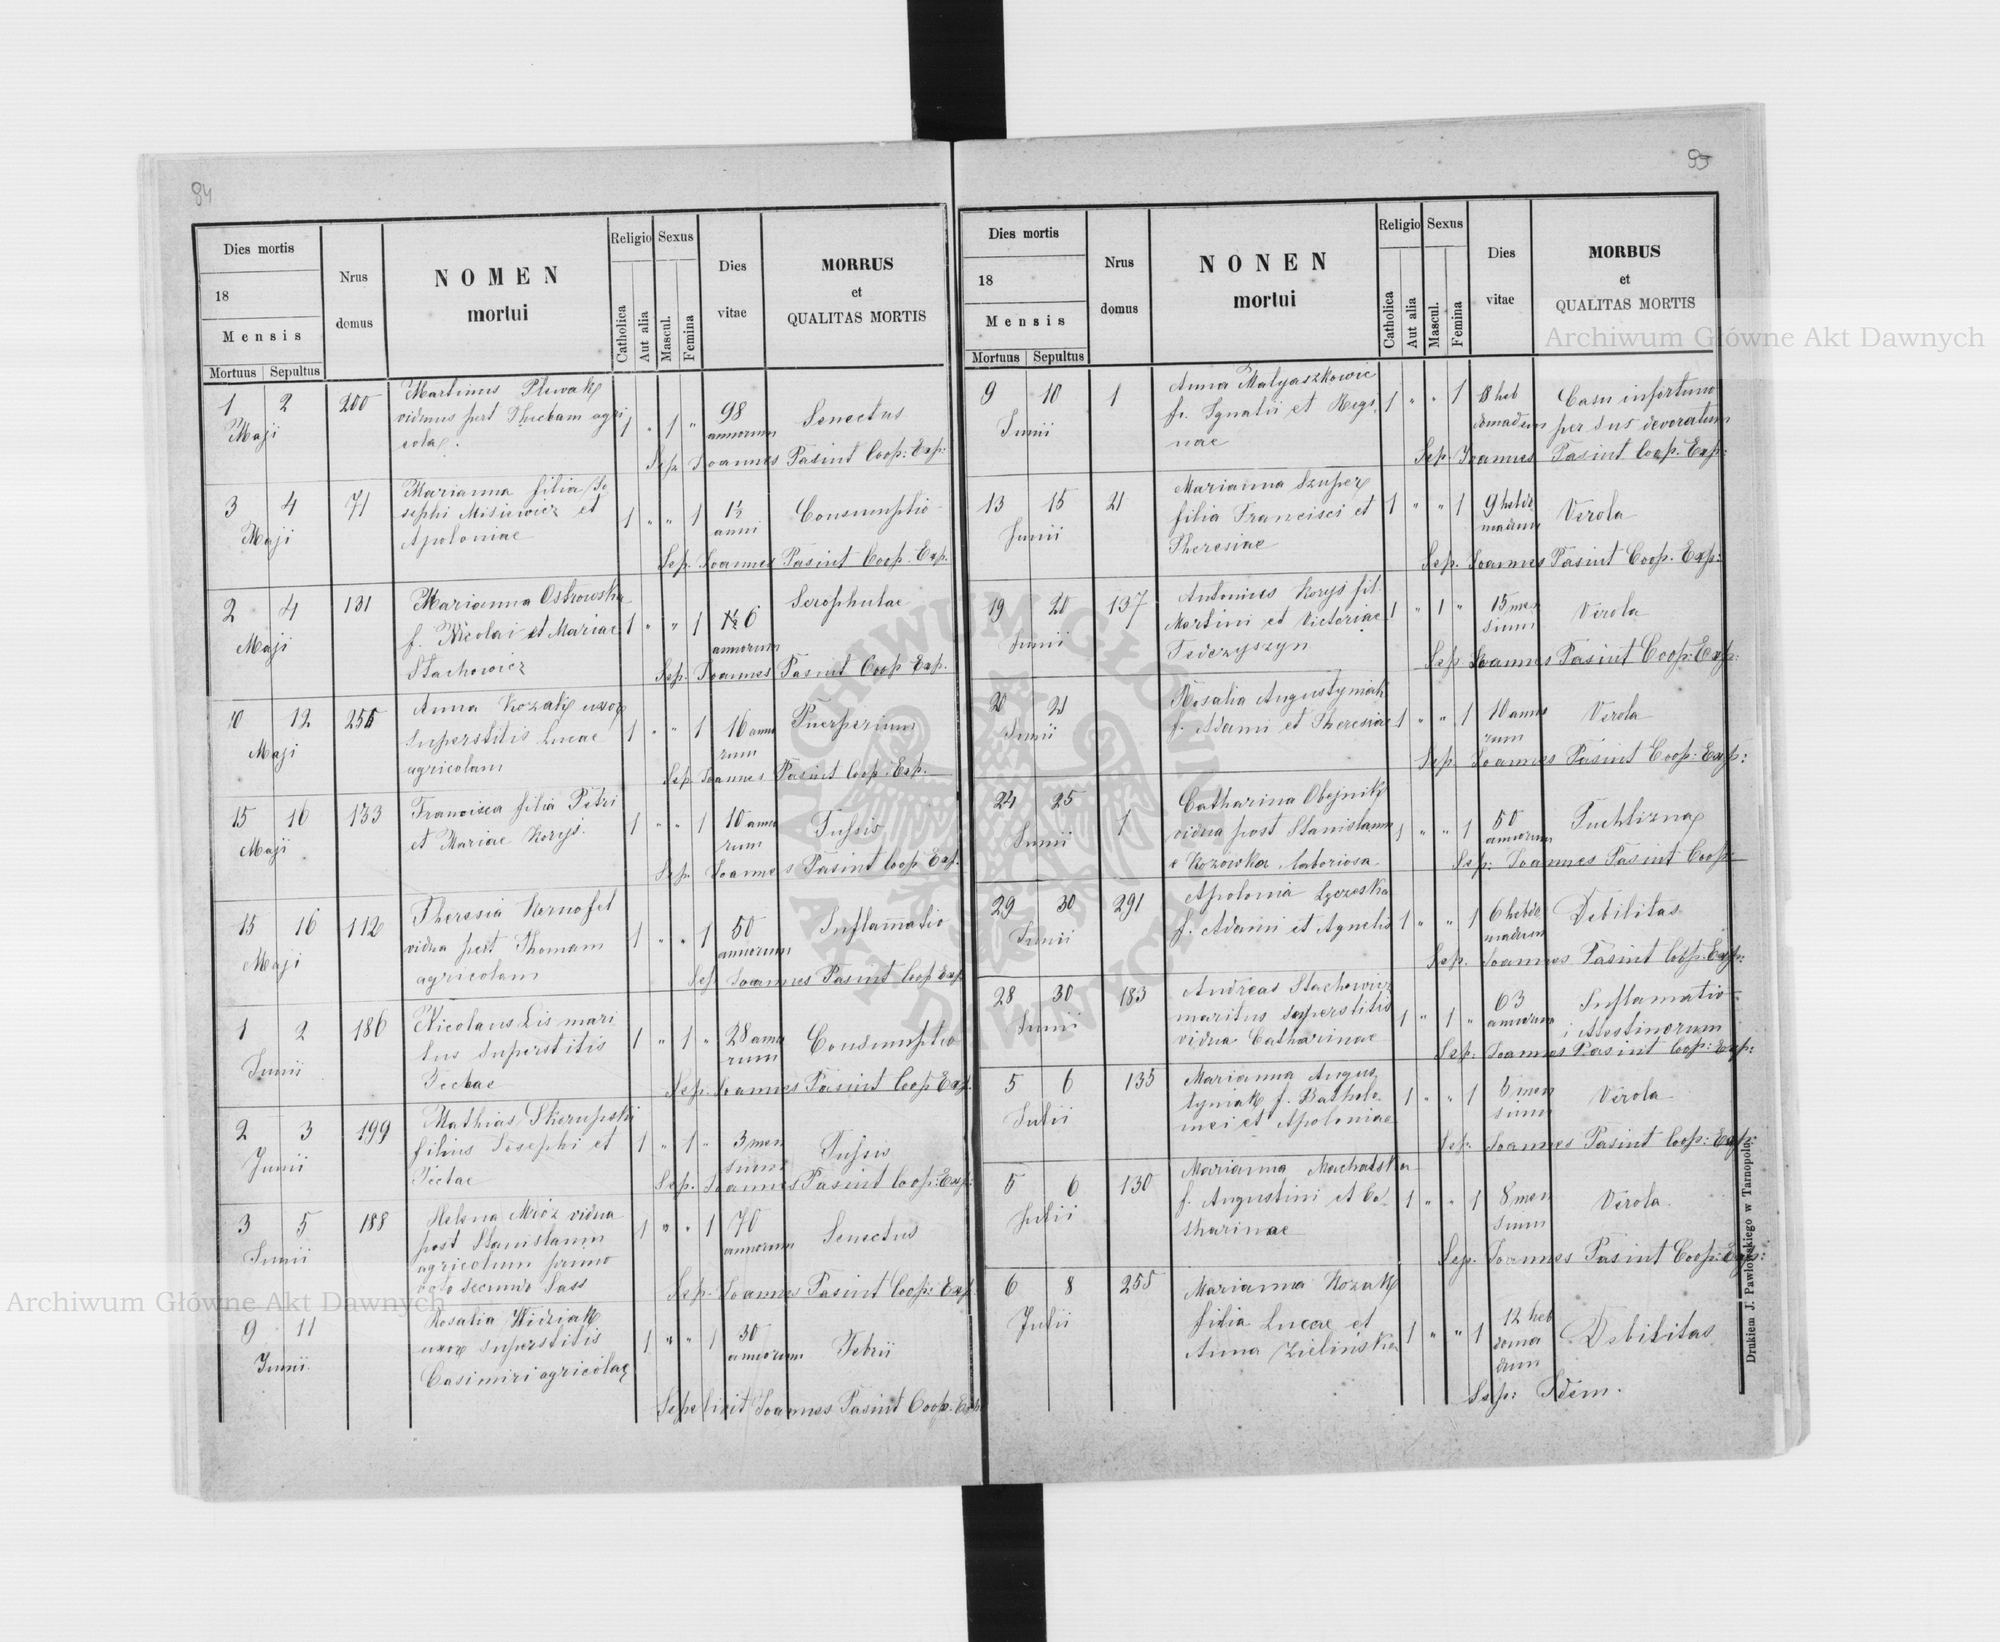 84
Dies mortis
18
Mensis
Mortuus Sepultus
Nrus domus
NOMEN mortui
Religio
Catholica
Aut alia
Sexus
Mascul.
Femina
Dies vitae
MORRUS
et
QUALITAS MORTIS
1 2 200 Martinus Plewak
viduus post Theclam agri 1 " 1 " 98 Senectus
Maji colae. annorum
Sep. Joannes Pasint Coop: Exp:
3 4 71 Marianna filia Jo
sephi Misiewicz et 1 " " 1 1½ Consumptio
Maji Apoloniae anni
Sep. Joannes Pasint Coop. Exp.
2 4 131 Marianna Ostrowska Scrophulae
f. Nicolai et Mariae 1 " " 1 6
Maji Stachowicz annorum
Sep. Joannes Pasint Coop Exp.
10 12 255 Anna Kozak uxor
superstitis Lucae 1 " " 1 16 anno Puerperium
Maji agricolam rum
Sep. Joannes Pasint Coop: Exp.
15 16 133 Francisca filia Petri
Maji et Mariae Korys. 1 " " 1 10 anno Tussis
rum
Sep. Joannes Pasint Coop Exp.
15 16 112 Theresia Kernofel
vidua post Thomam 1 " " 1 50 Inflammatio
Maji agricolam annorum
Sep Joannes Pasint Coop Exp
1 2 186 Nicolaus Lis mari
tus superstitis 1 " 1 " 28 anno Consumptio
Junii Teclae rum
Sep. Joannes Pasint Coop Exp.
2 3 199 Mathias Skerupski
filius Josephi et 1 " 1 " 3 men Tussis
Junii Teclae sium
Sep. Joannes Pasint Coop: Exp:
3 5 188 Helena Mróz vidua
post Stanislaum 1 " " 1 70 Senectus
Junii agricolam primo annorum
voto secundo Sass
Sep. Joannes Pasint Coop: Exp.
9 11 Rosalia
uxor superstitis 1 " " 1 30 Febrii
Junii. Casimiri agricolae annorum
Sepelivit Joannes Pasint Coop. Exp
95
Dies mortis
18
Mensis
Mortuus Sepultus
Nrus domus
NONEN mortui
Religio
Catholica
Aut alia
Sexus
Mascul.
Femina
Dies vitae
MORBUS
et
QUALITAS MORTIS
9 10 1 Anna Matyaszkowic
f. Ignatii et Regi 1 " " 1 8 heb Casu infortuno
Junii nae domadum per sus devoratum
Sep. Joannes Pasint Coop. Exp:
13 15 21 Marianna Szuper
filia Francisci et 1 " " 1 9 hebdo Verola
Junii Theresiae madum
Sep. Joannes Pasint Coop. Exp:
19 20 137 Antonius Korys fil.
Martini et Victoriae 1 " 1 " 15 men Verola
Junii Fedczyszyn sium
Sep. Joannes Pasint Coop: Exp:
20 21 Rosalia Augustyniak
Junii f. Adami et Theresiae 1 " " 1 10 anno Verola
rum
Sep. Joannes Pasint Coop: Exp:
24 25 1 Catharina Olejnik
vidua post Stanislaum 1 " " 1 50 Puchlizna
Junii e Kozowka laboriosa annorum
Sep: Joannes Pasint Coop:
29 30 291 Apolonia
Junii f. Adami et Agnetis 1 " " 1 6 hebdo Debilitas
madum
Sep. Joannes Pasint Coop. Exp:
28 30 183 Andreas Stachowicz
maritus superstitis 1 " 1 " 63 Inflamatio
Junii vidua Catharinae annorum
Sep: Joannes Pasint Coop: Exp:
5 6 135 Marianna Augus
tyniak f. Bartholo 1 " " 1 5 men Verola
Julii mei et Apoloniae sium
Sep. Joannes Pasint Coop: Exp:
5 6 130 Marianna Machalska
f. Augustini et Ca 1 " " 1 8 men Verola
Julii tharinae sium
Sep. Joannes Pasint Coop: Exp:
6 8 255 Marianna Kozak
filia Lucae et 1 " " 1 12 heb Debilitas
Julii Anna Zielińska doma
dum
Sep: Idem.
Drukiem J. Pawłowskiego w Tarnopolu.
Archiwum Główne Akt Dawnych
Archiwum Główne Akt Dawnych
ARCHIWUM GŁÓWNE AKT DAWNYCH